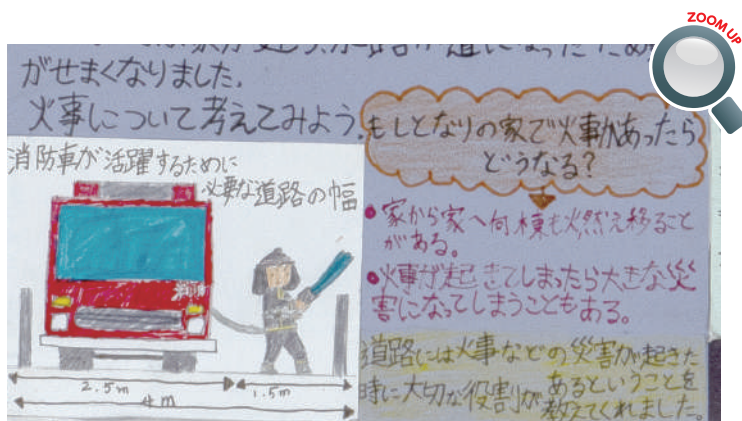 ZOOM UP
がせまくなりました。
火事について考えてみよう。
消防車が活躍するために
必要な道路の幅
消防
2.5m
1.5m
4m
もしとなりの家で火事があったら
どうなる?
●家から家へ何棟も火が燃え移ること
がある。
●火事が起きてしまったら大きな災
害になってしまうこともある。
道路には火事などの災害が起きた
時に大切な役割があるということを
教えてくれました。